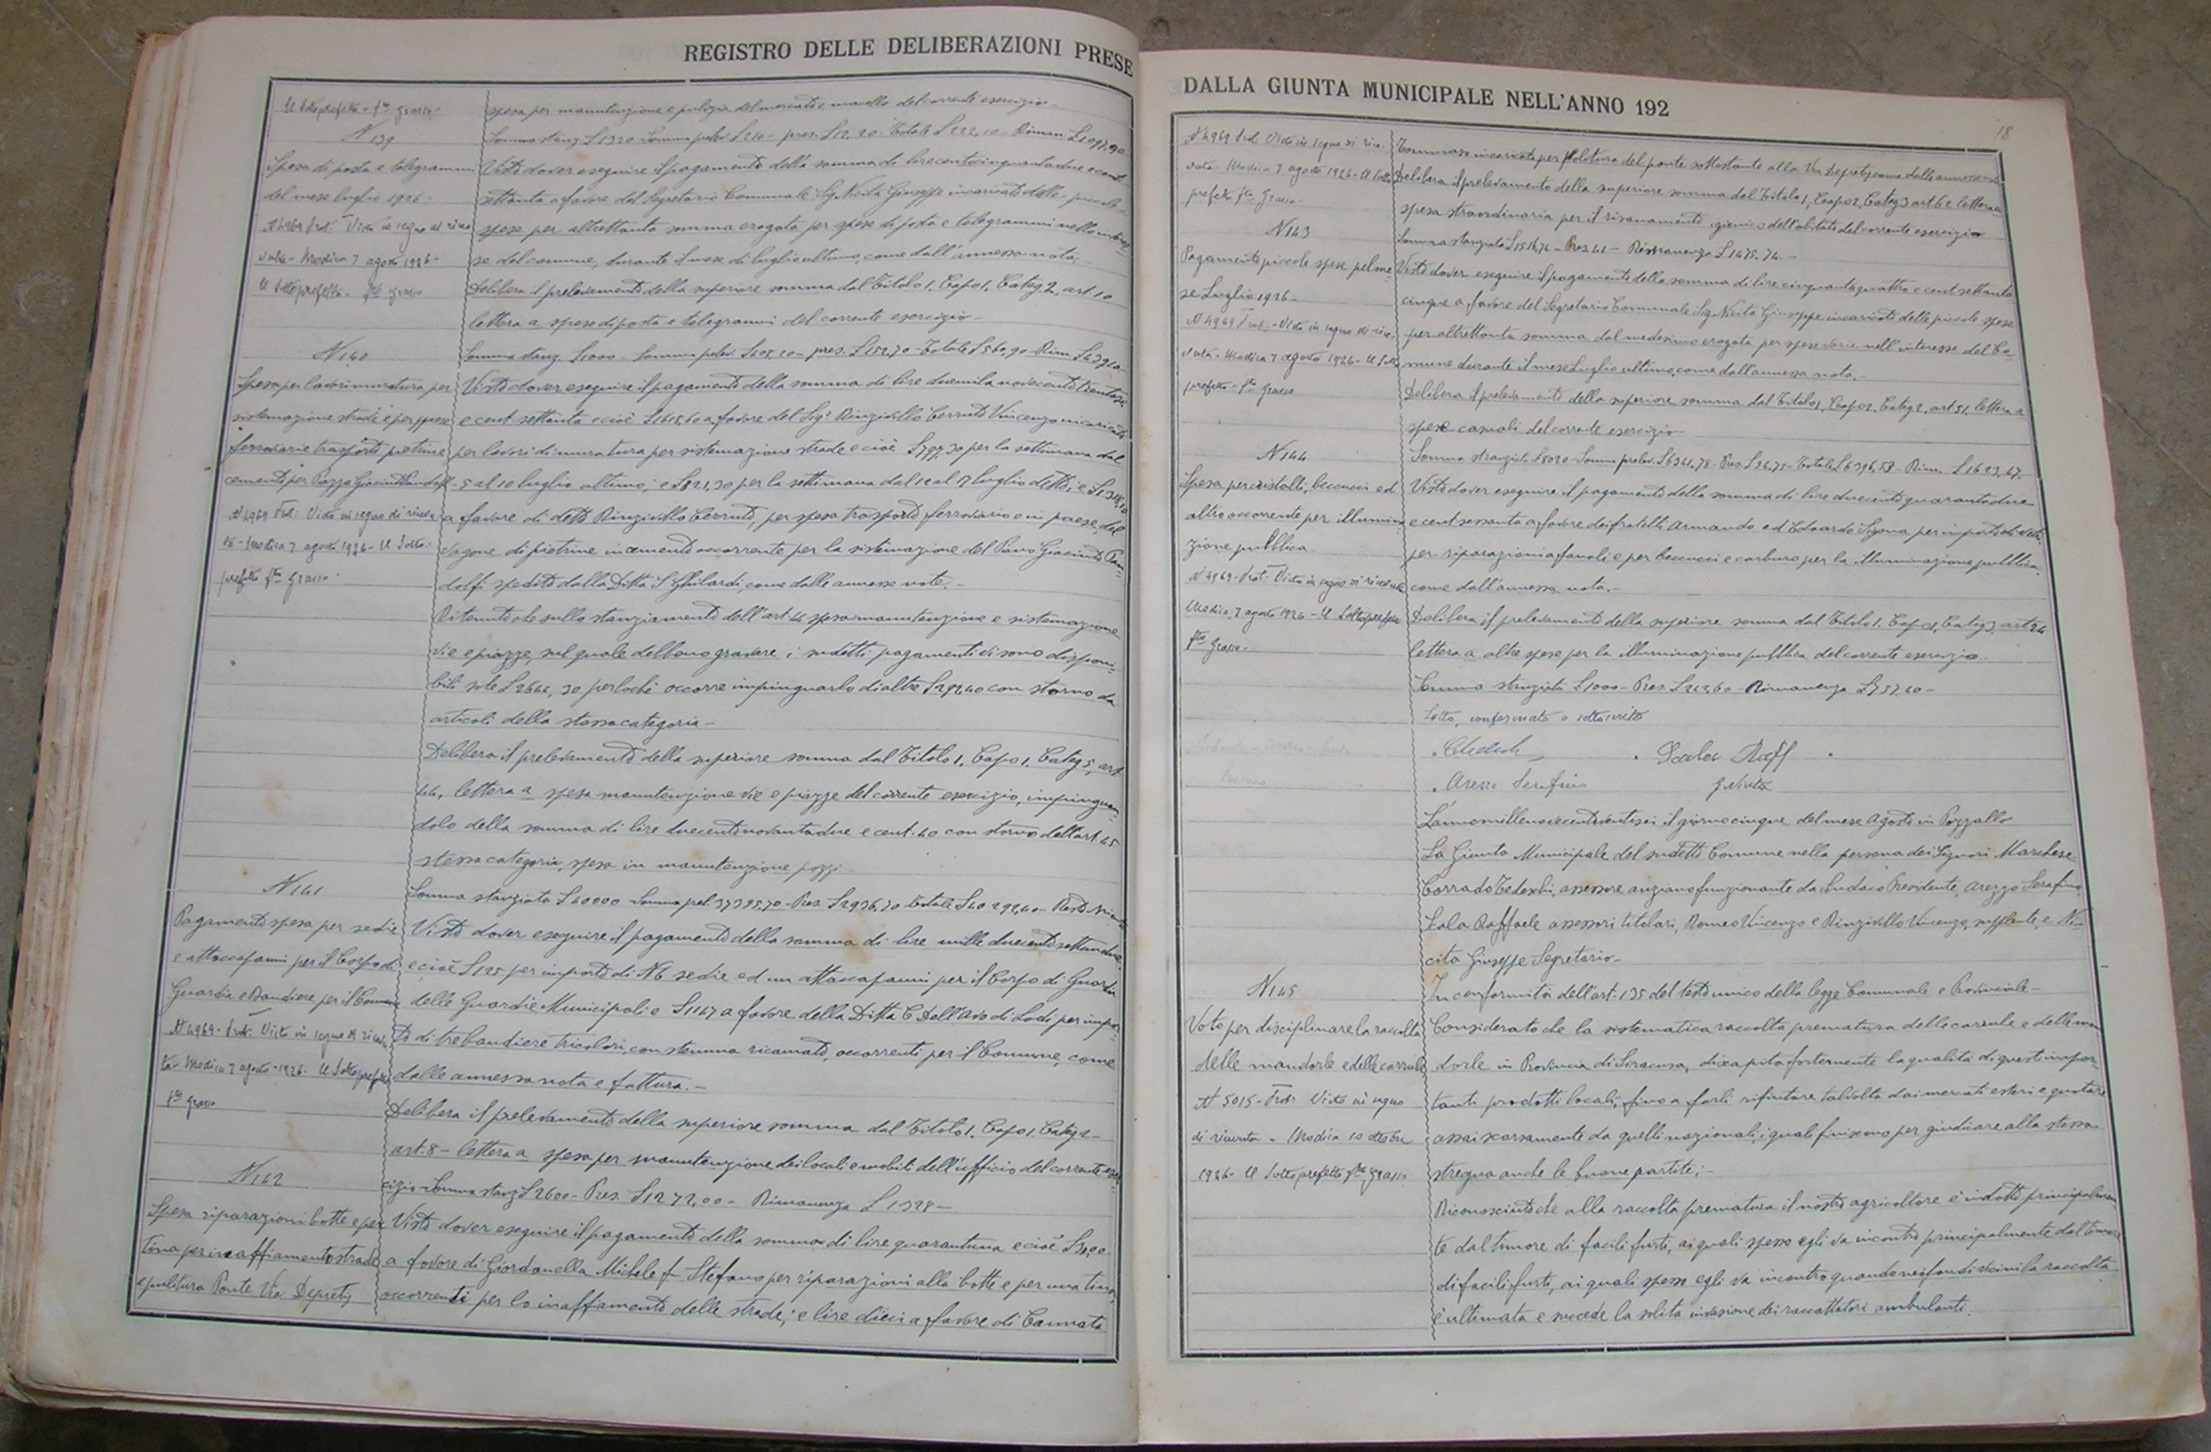 REGISTRO DELLE DELIBERAZIONI PRESE
Il Sottoprefetto - f.to Grasso
N 139
Spesa di posta e telegrammi
del mese luglio 1926 -
N 4969 Prot. Visto in segno di rice
vuta - Modica 7 agosto 1926 -
Il Sottoprefetto - f.to Grasso
N 140
Spesa per lavori muratura per
sistemazione strade e per spese
ferroviarie trasporto pietrine
cemento per Piazza Giacinto Pandolfi
N 4969 Prot. Visto in segno di ricevu
ta - Modica 7 agosto 1926 - Il Sotto-
prefetto f.to Grasso -
N 141
Pagamento spesa per sedie
e attaccapanni per il Corpo di
Guardia e Bandiere per il Comune
N 4969 - Prot. Visto in segno di ricevu
ta - Modica 7 agosto - 1926. Il Sottoprefetto
f.to Grasso
N 142
Spesa riparazioni botte e per
tina per inaffiamento strade
e pulitura Ponte Via Depretis
spesa per manutenzione e pulizia del mercato e macello del corrente esercizio -
Somma stanz. L 1320
Visto dover eseguire il pagamento della somma di lire centocinquantadue e cent.
settanta a favore del Segretario Comunale Sig. Nicita Giuseppe incaricato delle piccole
spese per altrettanta somma erogata per spese di posta e telegrammi nello interes
se del comune, durante il mese di luglio ultimo, come dall'annessa nota; -
Delibera il prelevamento della superiore somma dal Titolo 1. Capo 1. Categ 2. art. 10
lettera a spese di posta e telegrammi del corrente esercizio -
Somma stanz. L 1000 - Somma prelev. L 408.20 - pres. L 152,70 - Totale L 560,90 - Rim.
Visto dover eseguire il pagamento della somma di lire duemila novecento trentasei
e cent. settanta e cioè a favore del Sig.r Rinzivillo Cerruto Vincenzo incaricato
per lavori di muratura per sistemazione strade e cioè L 797,30 per la settimana dal
5 al 10 luglio ultimo; e L 821,30 per la settimana dal 12 al luglio detto; e
a favore di detto Rinzivillo Cerruto, per spesa trasporto ferroviario e in paese, del
vagone di pietrine in cemento occorrente per la sistemazione del Piano Giacinto Pan-
dolfi spedito dalla Ditta S. Ghilardi, come dalle annesse note. -
Ritenuto che sullo stanziamento dell'art. 44 spesa manutenzione e sistemazione
vie e piazze, nel quale debbono gravare i sudetti pagamenti vi sono disponi-
bili sole L 2644, 30 perlochè occorre impinguarlo di altre L 292,40 con storno da
articoli della stessa categoria -
Delibera il prelevamento della superiore somma dal Titolo 1. Capo 1. Categ 5, art.
44, lettera a spesa manutenzione vie e piazze del corrente esercizio, impinguan
dolo della somma di lire duecentonovantadue e cent. 40 con storno dall'art. 45
stessa categoria, spesa in manutenzione pozzi -
Somma stanziata L 40000 - Somma prel. 37355,70 - Pres. L 2936,70 Totale L 40 292,40 - Resto
Visto dover eseguire il pagamento della somma di lire mille duecento settandue
e cioè L 125 per importo di N 6 sedie ed un attaccapanni per il Corpo di Guardia
delle Guardie Municipali e L 1147 a favore della Ditta C. Dall'Avo di Lodi per impor
to di tre bandiere tricolori, con stemma ricamato, occorrenti per il Comune, come
dalle annessa nota e fattura. -
Delibera il prelevamento della superiore somma dal Titolo 1. Capo 1. Categ 2 -
art. 8 - lettera a spesa per manutenzione dei locali e mobili dell'ufficio del corrente eser
cizio - Somma stanz L 2600 - Pres. L 1272,00 - Rimanenza L 1328 -
Visto dover eseguire il pagamento della somma di lire quarantuna e cioè
a favore di Giordanella Michele fu Stefano per riparazioni alla botte e per una tina,
occorrenti per lo inaffiamento delle strade; e lire dieci a favore di Cannata
DALLA GIUNTA MUNICIPALE NELL'ANNO 192
18
N 4969 Prot. Visto in segno di rice-
vuta - Modica 7 agosto 1926 - Il Sotto
prefetto f.to Grasso -
N 143
Pagamento piccole spese pel me
se Luglio 1926 -
N 4969 Prot. - Visto in segno di rice
vuta - Modica 7 agosto 1926 - Il Sotto
prefetto - f.to Grasso
N 144
Spesa per cristalli, beccucci ed
altro occorrente per illumina
zione pubblica -
N 4969 - Prot. Visto in segno di ricevuta
Modica 7 agosto 1926 - Il Sottoprefetto
f.to Grasso -
N 145
Voto per disciplinare la raccolta
delle mandorle e delle carrube
N 5015 - Prot. Visto in segno
di ricevuta - Modica 10 ottobre
1926 - Il Sottoprefetto f.to Grasso
Tommaso incaricato per pulitura del ponte sottostante alla Via Depretis come dalle annesse note
Delibera il prelevamento della superiore somma dal Titolo 1, Capo 2, Categ 3 art. 62 lettera a
spesa straordinaria per il risanamento igienico dell'abitato del corrente esercizio
Somma stanziata L 1516,74 - Pres. 41 - Rimanenza L 1475,74 -
Visto dover eseguire il pagamento della somma di lire cinquantaquattro e cent. settanta
cinque a favore del Segretario Comunale Sig. Nicita Giuseppe incaricato delle piccole spese
per altrettanta somma dal medesimo erogata per spese varie nell'interesse del Co-
mune durante il mese Luglio ultimo, come dall'annessa nota. -
Delibera il prelevamento della superiore somma dal Titolo 1, Capo 2, Categ 2, art 51, lettera a
spese casuali del corrente esercizio -
Somma stanziata L 8020
Visto dover eseguire il pagamento della somma di lire duecento quarantadue
e cent. sessanta a favore dei fratelli Armando ed Edoardo Sigona per importo di
per riparazioni a fanali e per beccucci e carburo per la illuminazione pubblica
come dall'annessa nota. -
Delibera il prelevamento della superiore somma dal Titolo 1.
lettera a altre spese per la illuminazione pubblica del corrente esercizio -
Somma stanziata L 1000 - Pres. L 242,60 - Rimanenza L 757,40 -
Letto, confermato e sottoscritto
Tedeschi Scala Raff.
Arezzo Serafino G. Nicita
L'anno millenovecentoventisei il giorno cinque del mese Agosto in Pozzallo
La Giunta Municipale del sudetto Comune nella persona dei Signori Marchese
Corrado Tedeschi, assessore anziano funzionante da Sindaco Presidente, Arezzo Serafino,
Scala Raffaele assessori titolari, Romeo Vincenzo e Rinzivillo Vincenzo, supplente, e Ni-
cita Giuseppe Segretario -
In conformità dell'art. 135 del testo unico della legge Comunale e Provinciale -
Considerato che la sistematica raccolta prematura delle carrube e delle man
dorle in Provincia di Siracusa, discapita fortemente la qualità di questi impor-
tanti prodotti locali, fino a farli rifiutare talvolta dai mercati esteri e quotare
assai scarsamente da quelli nazionali, i quali finiscono per giudicare alla stessa
stregua anche le buone partite; -
Riconosciuto che alla raccolta prematura il nostro agricoltore è indotto principalmen
te dal timore di facili furti, ai quali spesso egli va incontro principalmente dal timore
di facili furti, ai quali spesso egli va incontro quando nei fondi vicini la raccolta
è ultimata e succede la solita invasione dei raccattatori ambulanti.